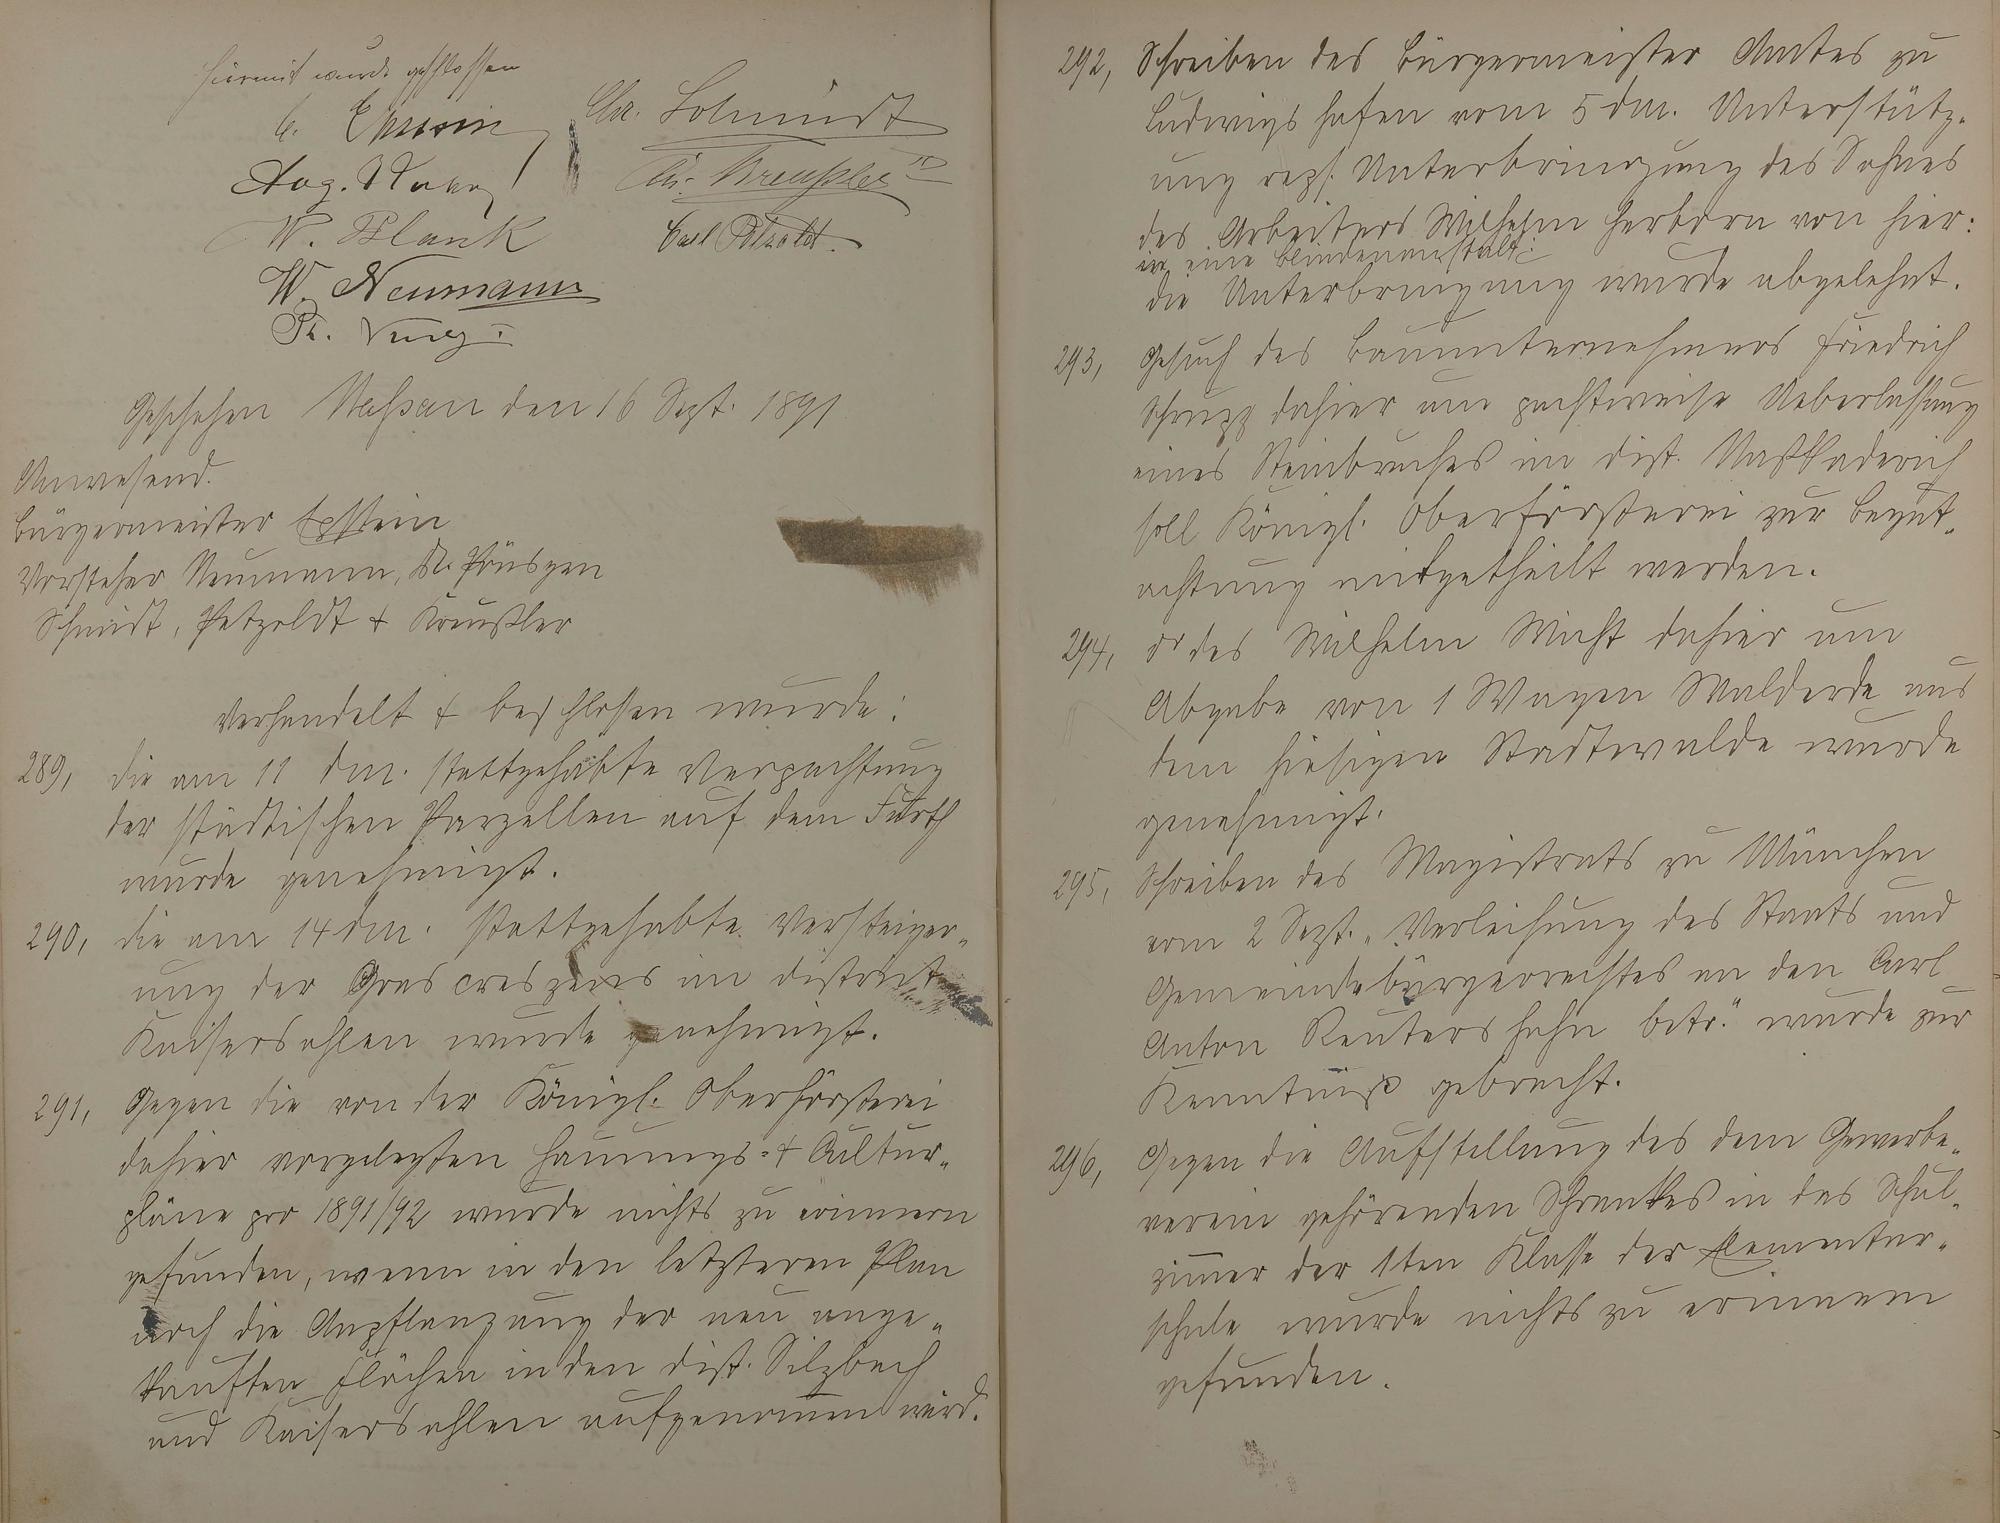 hiermit wurde geschlossen
Chr. Schmidt
Aug.
Chr. Kreußler IV
W. Plank
Carl Petzoldt.
W. Neumann
Geschehen Nassau den 16 Sept. 1891
Anwesend.
Bürgermeister Epstein
Vorsteher Neumann,
Schmidt, Petzoldt + Kreußler
Verhandelt + beschlossen wurde:
289, die am 11 dm. stattgehabte Verpachtung
der städtischen Parzellen auf dem Furth
wurde genehmigt.
290, die am 14 dm. stattgehabte Versteiger-
ung der Grascreszens im District
Kaisersohlen wurde genehmigt.
291, Gegen die von der Königl. Oberförsterei
dahier vorgelegten Hauungs- + Cultur-
pläne pro 1891/92 wurde nichts zu erinnern
gefunden, wenn in den letzteren Plan
noch die Anpflanzung der neu ange-
kauften Flächen in den Dist. Silzbach
und Kaisersohlen aufgenommen wird.
292, Schreiben des Bürgermeister Amtes zu
Ludwigshafen vom 5 dm. Unterstütz-
ung resp. Unterbringung des Sohnes
des Arbeiters Wilhelm Herborn von hier:
in eine Blindenanstalt:
die Unterbringung wurde abgelehnt.
293, Gesuch des Bauunternehmers Friedrich
Schrupp dahier um pachtweise Ueberlassung
eines Steinbruches im Dist.
soll Königl. Oberförsterei zur Begut-
achtung mitgetheilt werden.
294, do des Wilhelm Wicht dahier um
Abgabe von 1 Wagen Walderde aus
dem hiesigen Stadtwalde wurde
genehmigt.
295, Schreiben des Magistrats zu München
vom 2 Sept. „Verleihung des Staats und
Gemeindebürgerrechtes an den Carl
Anton Reutershahn betr." wurde zur
Kenntniß gebracht.
296, Gegen die Aufstellung des dem Gewerbe-
verein gehörenden Schrankes in das Schul-
zimmer der 1ten Klasse der Elementar-
schule wurde nichts zu erinnern
gefunden.